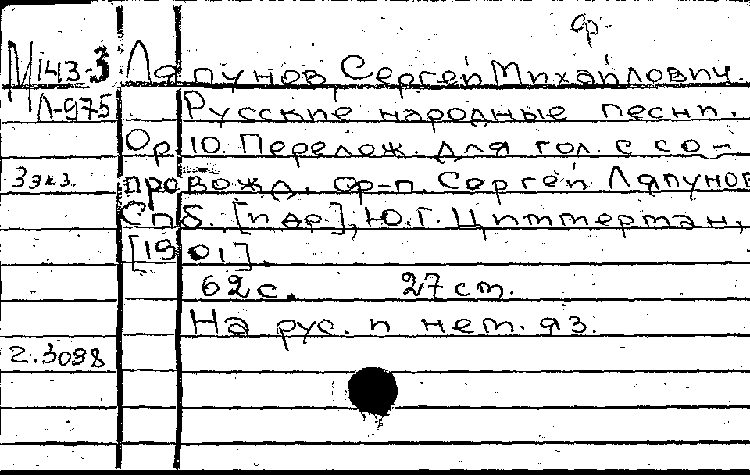 ф-
М143-3 Ляпунов Сергей Михайлович.
Л-975 Русские народные песни.
Op. 10. Перелож. для гол. с со-
3 экз. провожд. ф-п. Сергей Ляпунов
Спб. [и др.], Ю.Г. Циммерман,
[1901].
62 с. 27 см.
На рус. и нем. яз.
2.3088